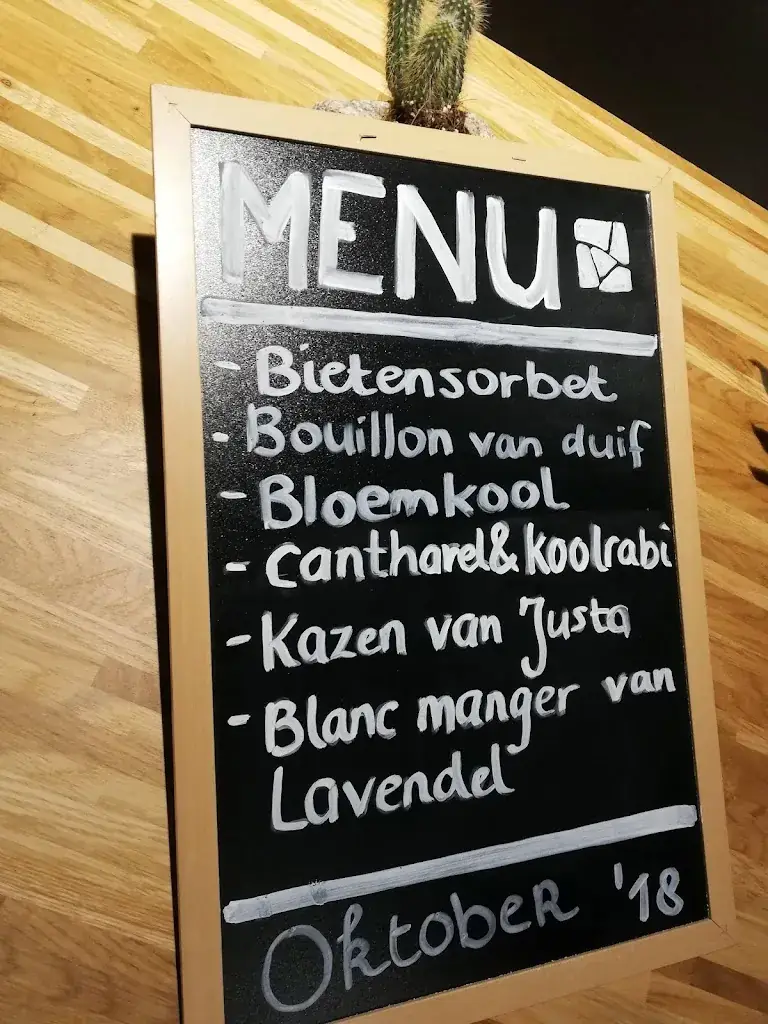 MENU
- Bietensorbet
- Bouillon van duif
- Bloemkool
- Cantharel & Koolrabi
- Kazen van Justa
- Blanc manger van
Lavendel
Oktober '18